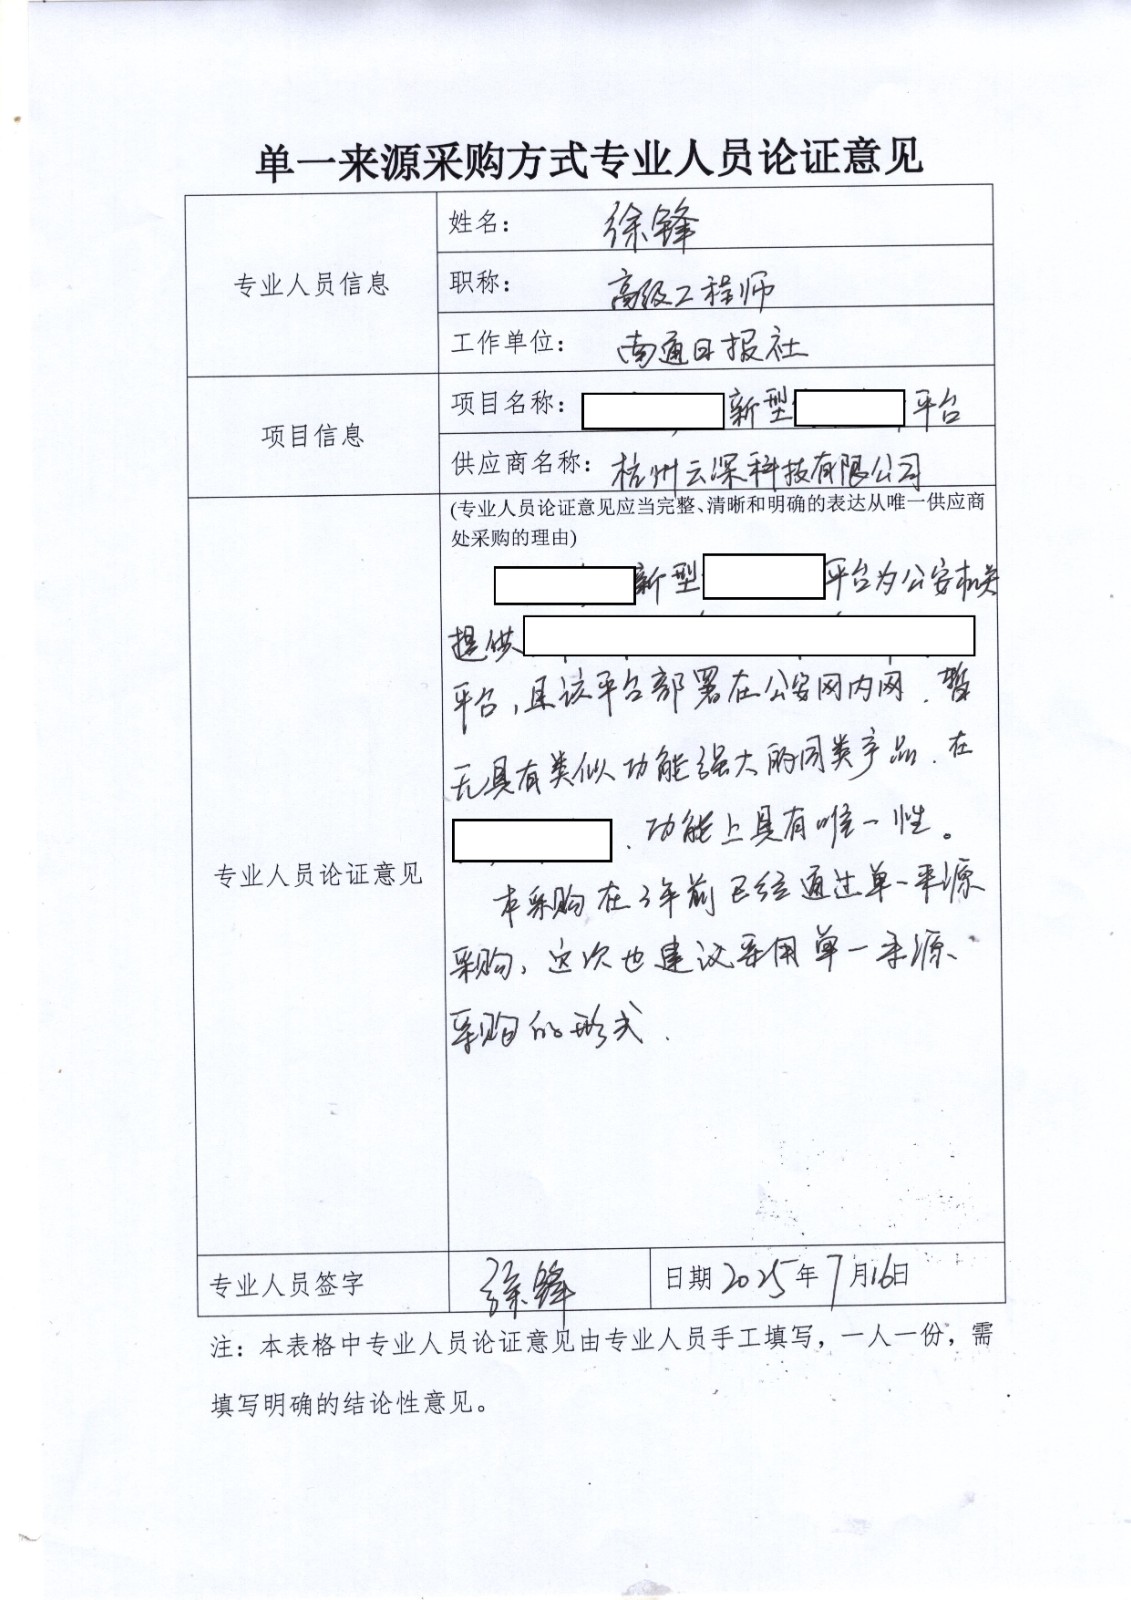 单一来源采购方式专业人员论证意见
专业人员信息
姓名： 徐锋
职称： 高级工程师
工作单位： 南通日报社
项目信息
项目名称： 新型 平台
供应商名称：杭州云深科技有限公司
专业人员论证意见
(专业人员论证意见应当完整、清晰和明确的表达从唯一供应商
处采购的理由)
新型 平台为公安机关
提供
平台，且该平台部署在公安网内网．暂
无具有类似功能强大的同类产品．在
．功能上具有唯一性。
本采购在3年前已经通过单一来源
采购，这次也建议采用单一来源
采购的形式．
专业人员签字 徐锋 日期 2025年7月16日
注：本表格中专业人员论证意见由专业人员手工填写，一人一份，需
填写明确的结论性意见。